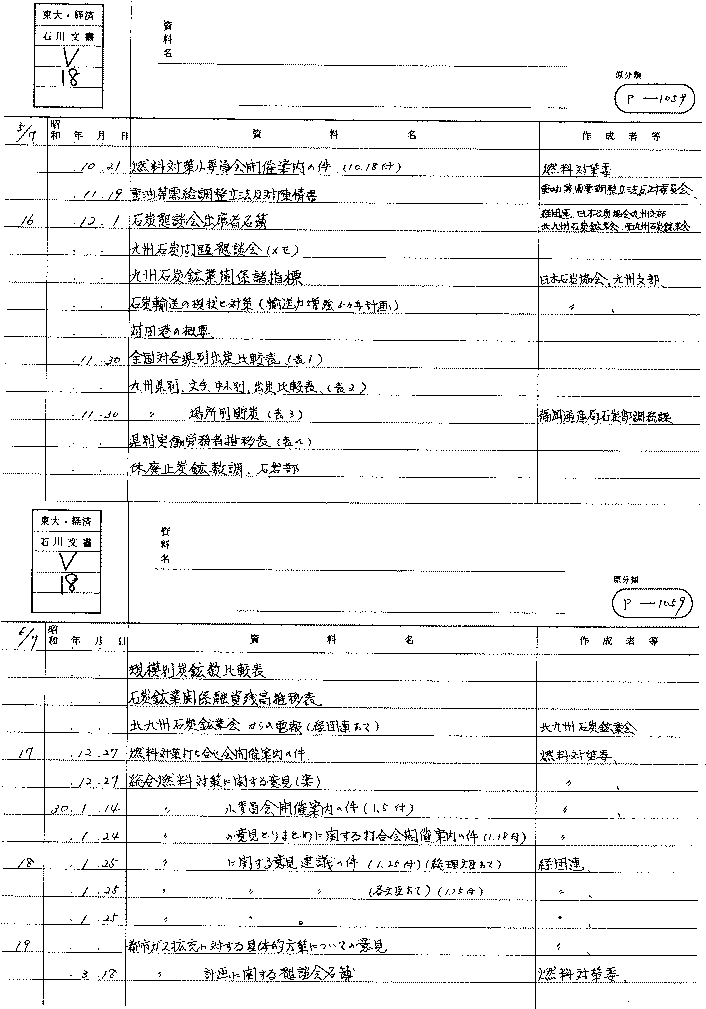 東大・経済
石川文書
V
18
資料名
原分類
P-1059
5/7 昭和 年 月 日 資料名 作成者等
10.21 燃料対策小委員会開催案内の件 (10.18付) 燃料対策委
11.19 重油等需給調整立法反対陳情書 重油等需要調整立法反対委員会
16 12.1 石炭懇談会出席者名簿 経団連、日本石炭協会九州支部 北九州石炭鉱業会、西九州石炭鉱業会
九州石炭問題懇談会 (メモ)
九州石炭鉱業関係諸指標 日本石炭協会、九州支部
石炭輸送の現状と対策 (輸送力増強5ヶ年計画) 〃
苅田港の概要
11.30 全国対各県別出炭比較表 (表1)
九州県別、大手、中小別、出炭比較表 (表2)
11.30 〃 場所別貯炭 (表3) 福岡通産局石炭部調統課
県別実働労務者推移表 (表4)
休廃止炭鉱数調 石炭部
東大・経済
石川文書
V
18
資料名
原分類
P-1059
6/7 昭和 年 月 日 資料名 作成者等
規模別炭鉱数比較表
石炭鉱業関係融資残高推移表
北九州石炭鉱業会からの電報 (経団連あて) 北九州石炭鉱業会
17 12.27 燃料対策打ち合せ会開催案内の件 燃料対策委
12.27 総合燃料対策に関する意見 (案) 〃
30.1.14 〃 小委員会開催案内の件 (1.5付) 〃
1.24 〃 の意見とりまとめに関する打合会開催案内の件 (1.18付) 〃
18 1.25 〃 に関する意見建議の件 (1.25付) (総理大臣あて) 経団連
1.25 〃 〃 〃 (各大臣あて) (1.25付) 〃
1.25 〃 〃 。 〃
19 都市ガス拡充に対する具体的方策についての意見 〃
3.18 〃 計画に関する懇談会名簿 燃料対策委